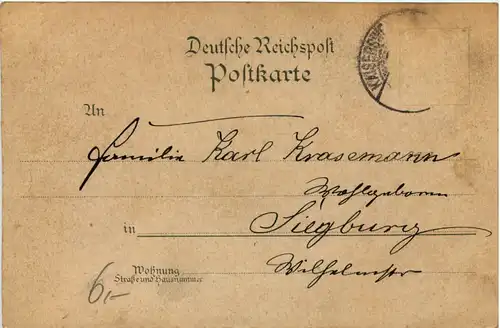 Deutsche Reichspost
Postkarte
An
Familie Karl Krasemann
Wohlgeboren
in Siegburg
Wohnung
Straße und Hausnummer
Wilhelmstr
6,-